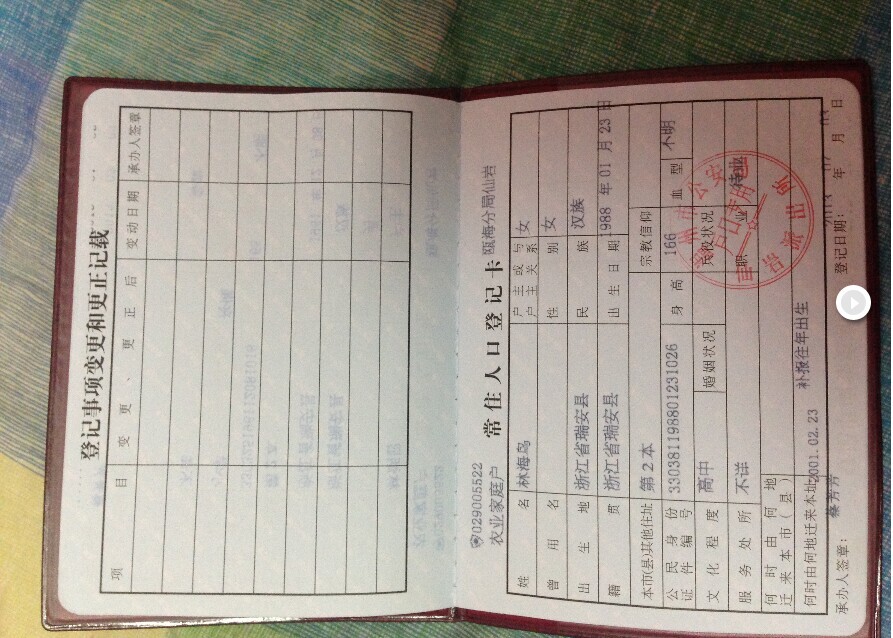 登记事项变更和更正记载
项 目 变 更 、 更 正 后 变动日期 承办人签章
029005522
农业家庭户 常 住 人 口 登 记 卡 瓯海分局仙岩
姓 名 林海鸟 户主或与户主关系 女
曾用名 性别 女
出生地 浙江省瑞安县 民族 汉族
籍贯 浙江省瑞安县 出生日期 1988 年 01 月 23 日
本市(县)其他住址 第 2 本 宗教信仰
公民身份证件编号 330381198801231026 身高 166 血型 不明
文化程度 高中 婚姻状况 兵役状况
服务处所 不详 职业 待业
何时由何地迁来本市(县)
何时由何地迁来本址 2001.02.23 补报往年出生
承办人签章: 登记日期: 年 月 日